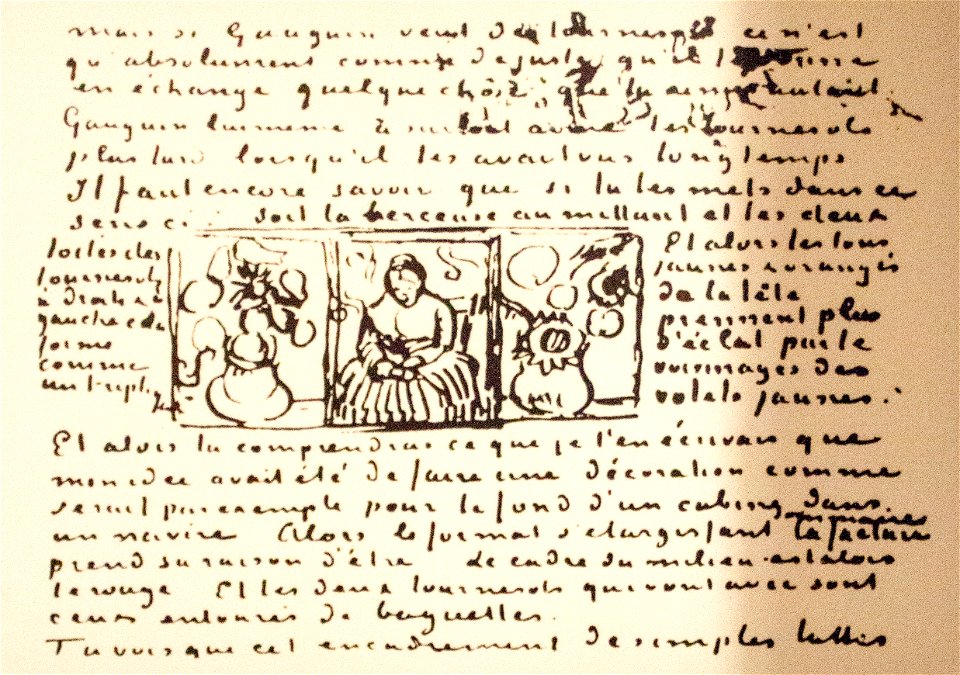 mais si Gauguin veut des tournesols ce n'est
qu'absolument comme de juste qu'il te donne
en échange quelque chose que tu aimes autant.
Gauguin lui même a surtout aimé les tournesols
plus tard lorsqu'il les avait vus longtemps
Il faut encore savoir que si tu les mets dans ce
sens ci soit la berceuse au millant et les deux
toiles des
tournesols
à droite et à
gauche cela
forme
comme
un triptyque
Et alors les tons
jaunes & orangés
de la tête
prennent plus
d'éclat par le
voisinages des
volets jaunes.
Et alors tu comprendras ce que je t'en écrivais que
mon idée avait été de faire une décoration comme
serait par exemple pour le fond d'un cabine dans
un navire Alors le format s'élargissant la facture
sommaire
prend sa raison d'être Le cadre du milieu est alors
le rouge Et les deux tournesols qui vont avec sont
ceux entourés de baguettes.
Tu vois que cet encadrement de simples lattes